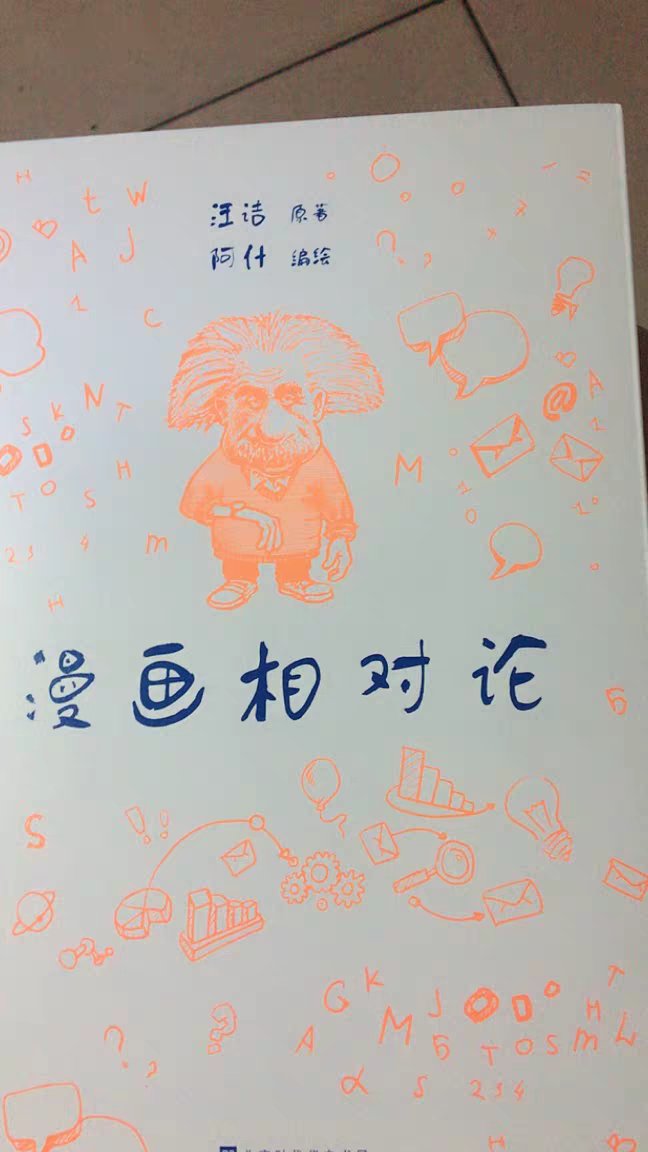 汪洁 原著
阿什 编绘
漫画相对论